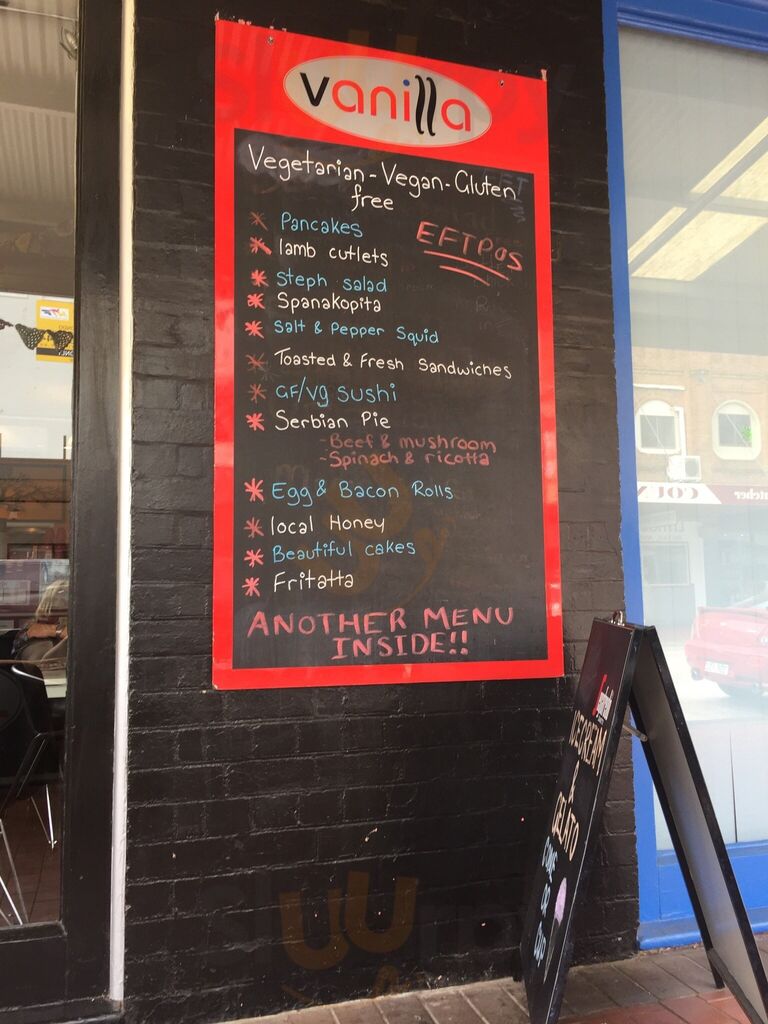 vanilla
Vegetarian - Vegan - Gluten
free
EFTPOS
* Pancakes
* lamb cutlets
* Steph salad
* Spanakopita
* Salt & Pepper Squid
* Toasted & Fresh Sandwiches
* GF/Vg Sushi
* Serbian Pie
- Beef & mushroom
- Spinach & ricotta
* Egg & Bacon Rolls
* local Honey
* Beautiful cakes
* Fritatta
ANOTHER MENU
INSIDE!!
ICECREAM
&
GELATO
CONE
OR
CUP